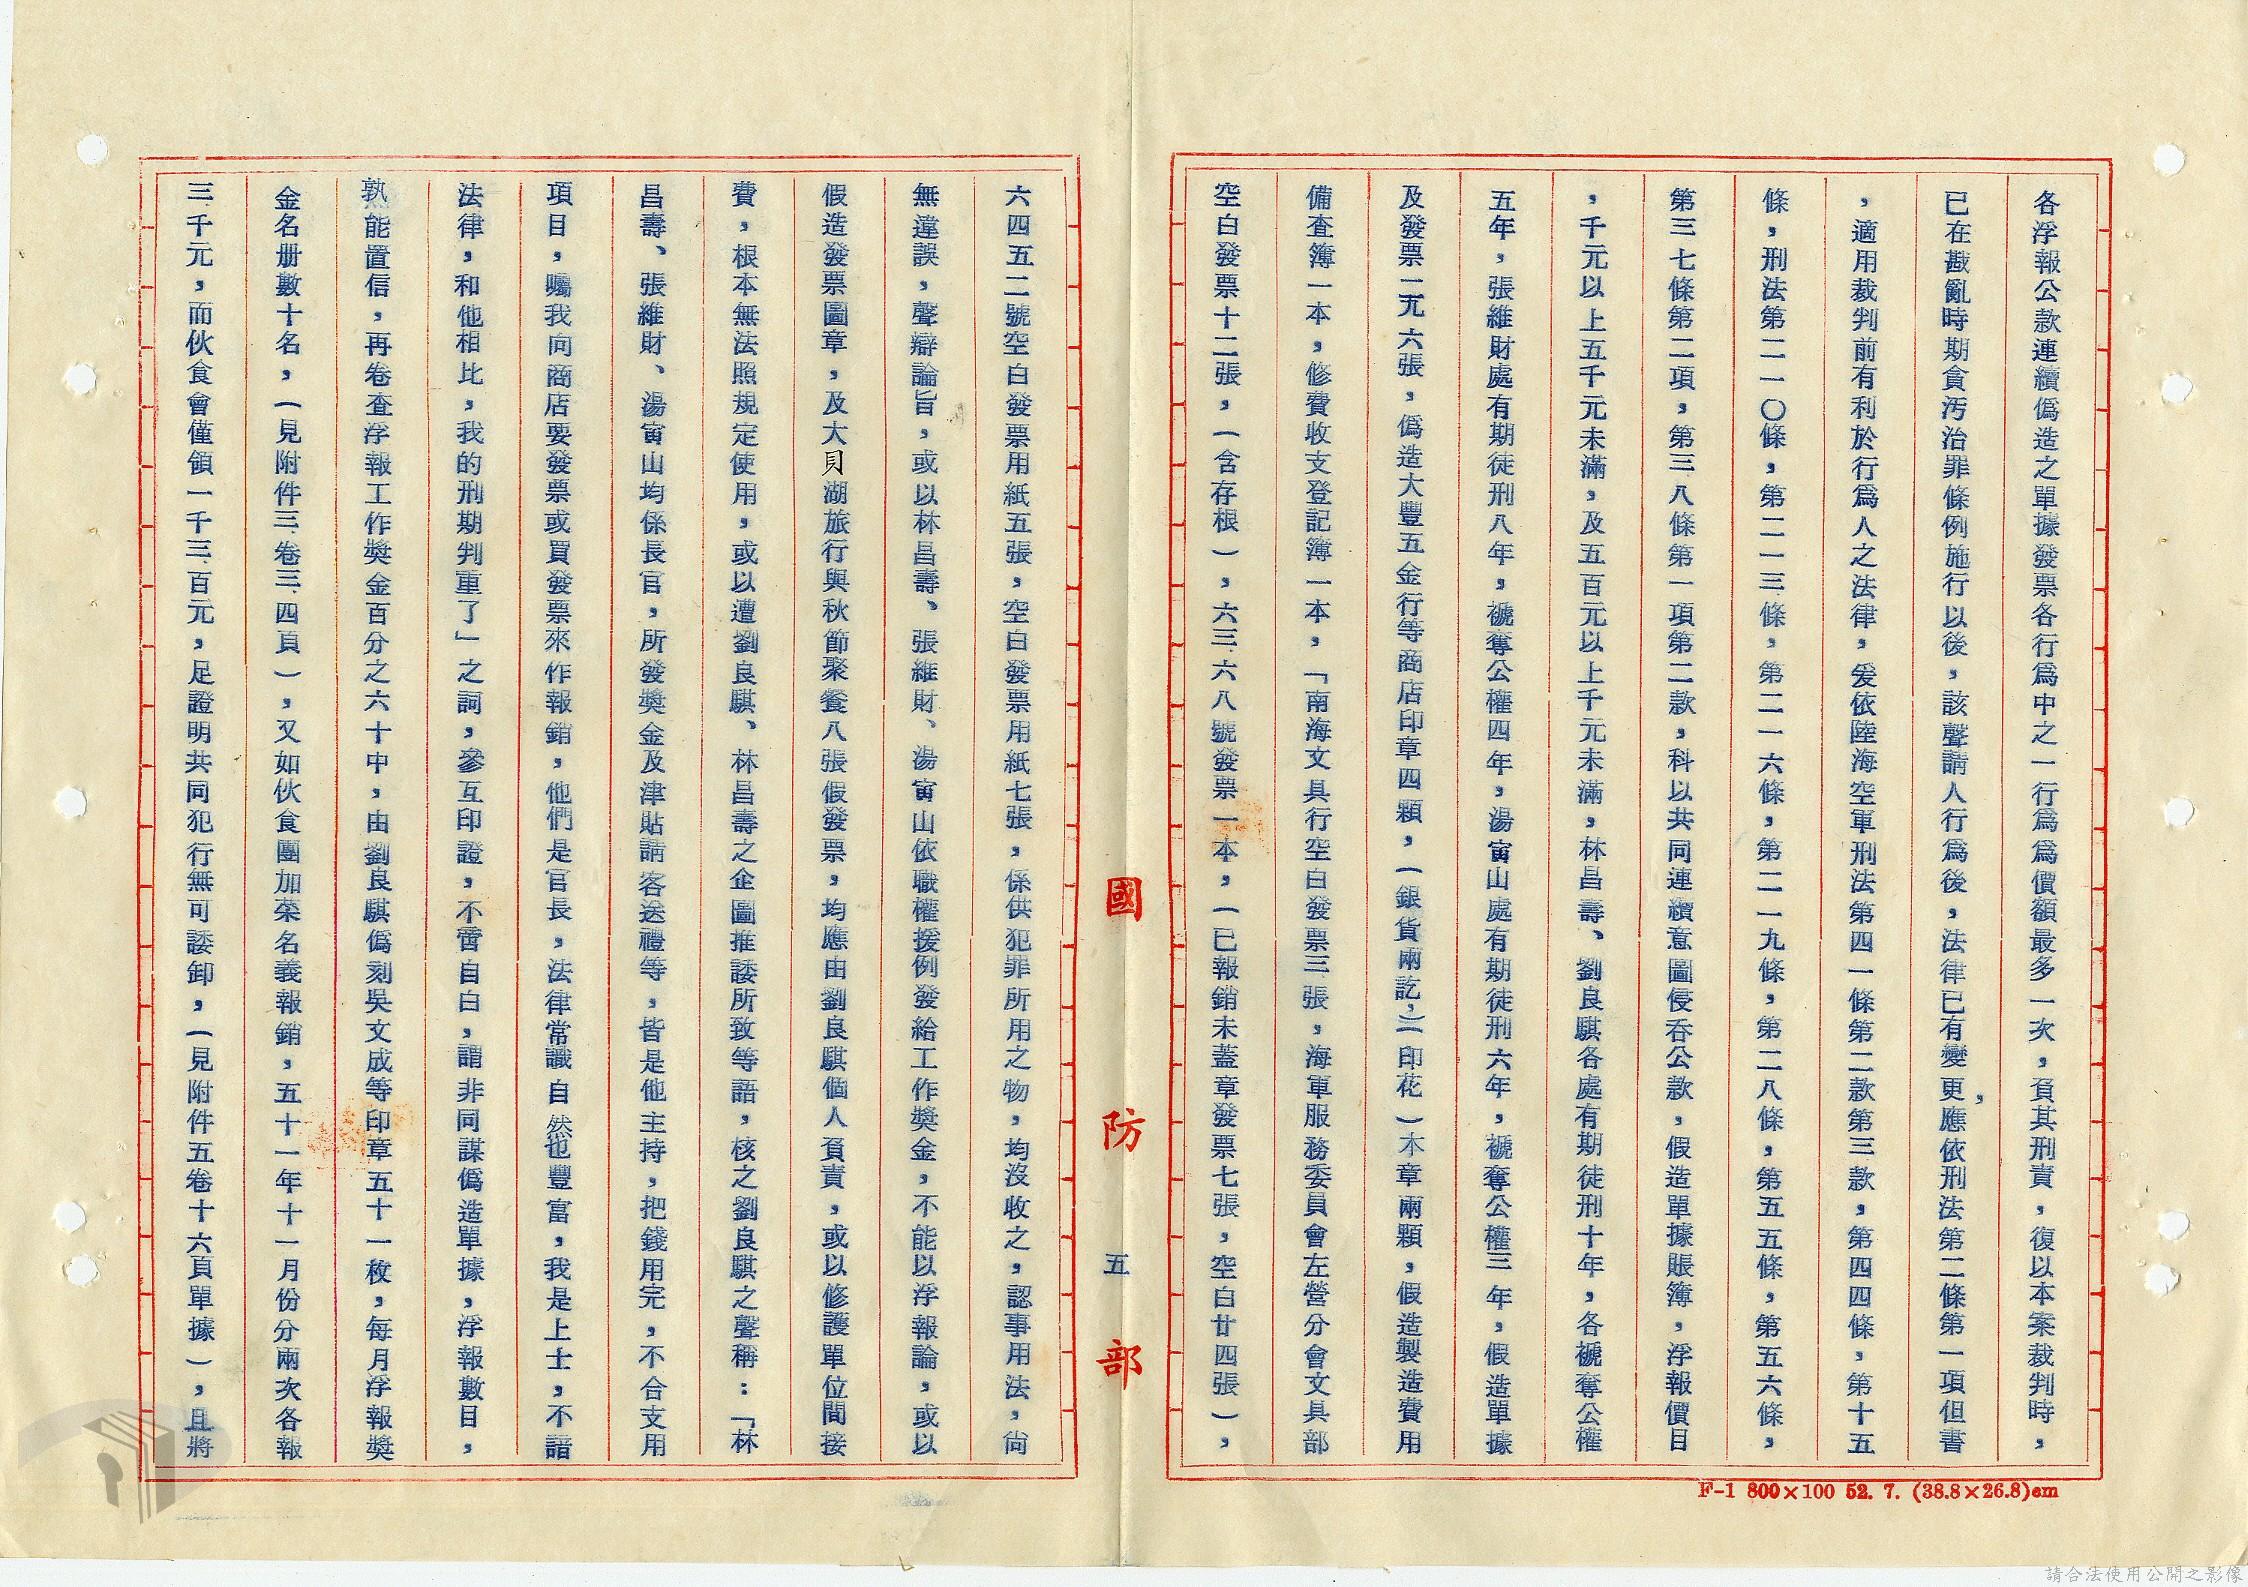 各浮報公款連續偽造之單據發票各行為中之一行為為價額最多一次，負其刑責，復以本案裁判時，
已在戡亂時期貪污治罪條例施行以後，該聲請人行為後，法律已有變更，應依刑法第二條第一項但書
，適用裁判前有利於行為人之法律，爰依陸海空軍刑法第四一條第二款第三款，第四四條，第十五
條，刑法第二一〇條，第二一三條，第二一六條，第二一九條，第二八條，第五五條，第五六條，
第三七條第二項，第三八條第一項第二款，科以共同連續意圖侵吞公款，假造單據賬簿，浮報價目
，千元以上五千元未滿，及五百元以上千元未滿，林昌壽、劉良騏各處有期徒刑十年，各褫奪公權
五年，張維財處有期徒刑八年，褫奪公權四年，湯寅山處有期徒刑六年，褫奪公權三年，假造單據
及發票二九六張，偽造大豐五金行等商店印章四顆，（銀貨兩訖，）（印花）本章兩顆，假造製造費用
備查簿一本，修費收支登記簿一本，「南海文具行空白發票三張，海軍服務委員會左營分會文具部
空白發票十二張，（含存根），六三六八號發票一本，（已報銷未蓋章發票七張，空白廿四張），
國防部
五
六四五二號空白發票用紙五張，空白發票用紙七張，係供犯罪所用之物，均沒收之，認事用法，尚
無違誤，聲辯論旨，或以林昌壽、張維財、湯寅山依職權援例發給工作獎金，不能以浮報論，或以
假造發票圖章，及大貝湖旅行與秋節聚餐八張假發票，均應由劉良騏個人負責，或以修護單位間接
費，根本無法照規定使用，或以遭劉良騏、林昌壽之企圖推諉所致等語，核之劉良騏之聲稱：「林
昌壽、張維財、湯寅山均係長官，所發獎金及津貼請客送禮等，皆是他主持，把錢用完，不合支用
項目，囑我向商店要發票或買發票來作報銷，他們是官長，法律常識自然也豐富，我是上士，不諳
法律，和他相比，我的刑期判重了」之詞，參互印證，不啻自白，謂非同謀偽造單據，浮報數目，
孰能置信，再卷查浮報工作獎金百分之六十中，由劉良騏偽刻吳文成等印章五十一枚，每月浮報獎
金名册數十名，（見附件三卷三四頁），又如伙食團加菜名義報銷，五十一年十一月份分兩次各報
三千元，而伙食會僅領一千三百元，足證明共同犯行無可諉卸，（見附件五卷十六頁單據），且將
F-1 800×100 52. 7. (38.8×26.8)cm
請合法使用公開之影像